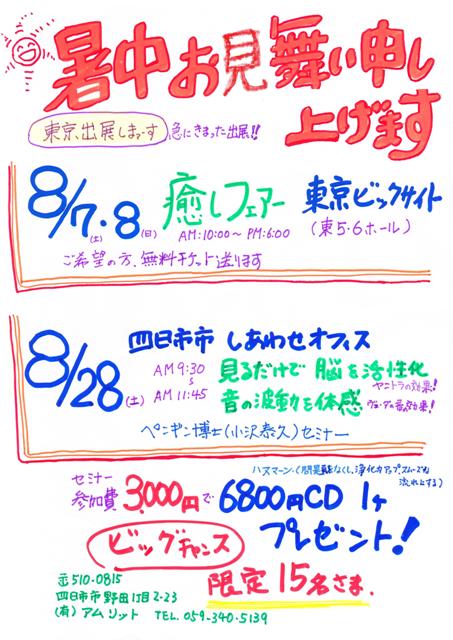 暑中お見舞い申し
上げます
東京出展しまぁす 急にきまった出展!!
8/7・8 癒しフェアー 東京ビックサイト
(土) (日) AM:10:00〜PM:6:00 (東5・6ホール)
ご希望の方、無料チケット送ります
8/28(土) 四日市市 しあわせオフィス
AM9:30 見るだけで 脳を活性化
ヤントラの効果!
AM11:45 音の波動を体感
ペンギン博士(小沢泰久)セミナー
セミナー
参加費 3,000円で 6800円CD 1ケ
プレゼント!
ビッグチャンス
限定 15名さま、
〒510-0815
四日市市野田1丁目2-23
(有)アムリット TEL. 059-340-5139